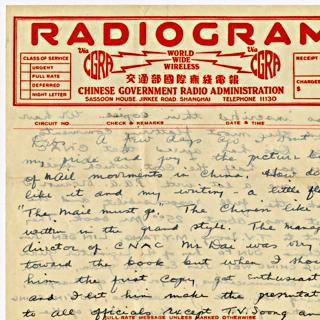 RADIOGRAM
Via CGRA
WORLD WIDE WIRELESS
Via CGRA
交通部國際無綫電報
CHINESE GOVERNMENT RADIO ADMINISTRATION
SASSOON HOUSE, JINKEE ROAD, SHANGHAI TELEPHONE 11130
CLASS OF SERVICE
URGENT
FULL RATE
DEFERRED
NIGHT LETTER
RECEIPT
CHARGES
$
CIRCUIT NO. CHECK & REMARKS DATE & TIME
A few days ago
my pride and joy the picture
of mail movements in China. How do
like it and my writing a little
"The Mail must go". The Chinese like
written in the grand style. The Manag
director of CNAC Mr Dai was very
toward the book but when I sho
him the first copy got enthusiast
and I let him make the presentat
to all officials except T.V. Soong an
FULL-RATE MESSAGE UNLESS MARKED OTHERWISE